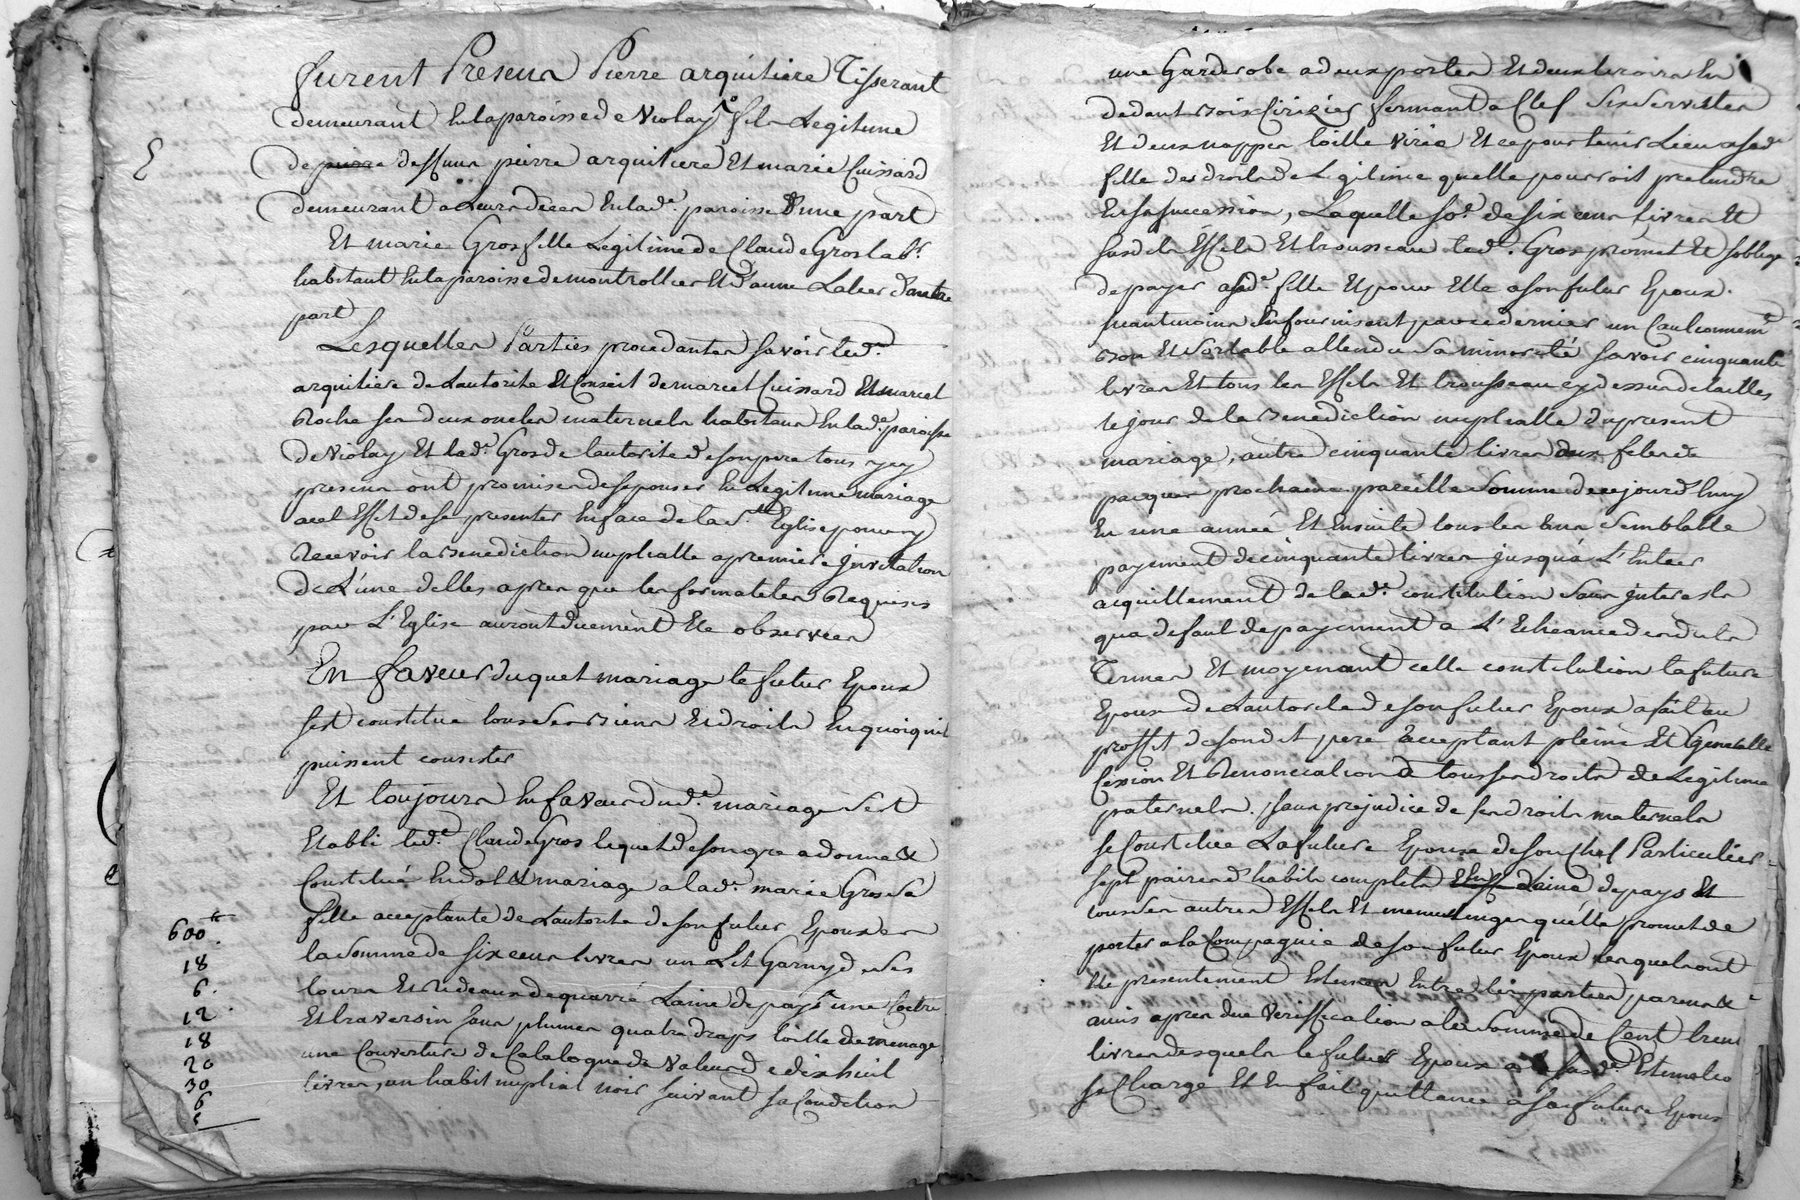 furent Presens Pierre arquitiere Tisserant
demeurant En la paroisse de Violay fils Legitime
de deffuns pierre arquitiere Et marie Cuissard
demeurant a Leurs deces En lade. paroisse d'une part
Et marie Gros fille Legitime de Claude Gros labr.
habitant En la paroisse de montrollier Et d'anne d'autre
part
Lesquelles Parties procedantes savoir led.
arquitiere de L'autorité Et Conseil de marcel Cuissard Et marcel
Roche ses deux oncles maternels habitans En lade. paroisse
de Violay Et lade. Gros de l'autorité de son pere tous icy
presens ont promis de s'epouser En Legitime mariage
a cet Effet de se presenter En face de la Ste. Eglise pour y
Recevoir la Benediction nuptialle a premiere jnvitation
de L'une d'elles apres que les formalites Requises
par L'Eglise auront duement Ete observees
En faveur duquel mariage le futur Epoux
s'est constitué tous ses Biens Et droits En quoi qu'il
puissent consister
Et toujours En faveur dud. mariage s'est
Etabli led. Claude Gros lequel de son gre a donné &
Constitué En dot & mariage a lade. marie Gros sa
fille acceptante de L'autorité de son futur Epoux
la somme de six cens livres un Lit Garny de ses
tours Et Rideaux de quarré Laine de pays une Coetre
Et traversin sans plumes quatre draps toille de menage
une Couverture de Catalogne de Valeur de dix huit
livres, un habit nuptial noir suivant sa Condition
600 ₶
18
6
12
18
20
30
6
une Garderobe a deux portes Et deux tiroirs En
dedans bois Cirizier fermant a Clef six serviettes
Et deux nappes toille Et ce pour tenir Lieu a sade.
fille des droits de Legitime quelle pourroit pretendre
En sa succession, Laquelle so.e de six cens livres Et
susdits Effets Et trousseau led. Gros promet Et s'oblige
de payer a sade. fille Et pour Elle a son futur Epoux
neantmoins En fournissant par ce dernier un Cautionnemt.
bon Et Vortable attendu sa minorité savoir cinquante
livres Et tous les Effets Et trousseau cy dessus detailles
le jour de la Benediction nuptialle du present
mariage, autre cinquante livres aux fetes de
pacques prochaine pareille somme de ce jourd'huy
En une année Et Ensuite tous les ans semblable
payement de cinquante livres jusqu'a L'Entier
acquittement de lade. constitution sans jnterests
qua defaut de payement a L'Echeance desdits
Termes Et moyenant cette constitution la future
Epouse de L'autorité de son futur Epoux a fait au
proffit de son dit pere acceptant pleine Et Generalle
Cession Et Renonciation a tous ses droits de Legitime
paternels. sans prejudice de ses droits maternels
se Constitue La future Epouse de son Chef Particulier
sept paires d'habits complets Laine de pays Et
tous ses autres Effets Et menus linges quelle promet de
porter a la Compagnie de son futur Epoux lesquels ont
Ete presentement Estimes Entre les parties, parens &
amis apres due Veriffication a la somme de Cent trente
livres desquels le futur Epoux a Estimatio
se Charge Et En fait quittance a sa future Epouse